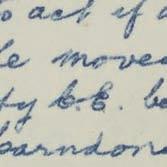 to act if a
be moved
ty C.E. be
barndon